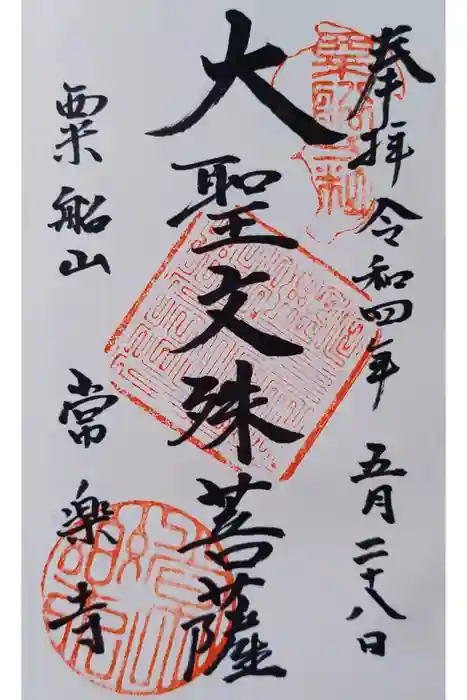 奉拝 令和四年 五月二十八日
大聖文殊菩薩
粟船山 常楽寺